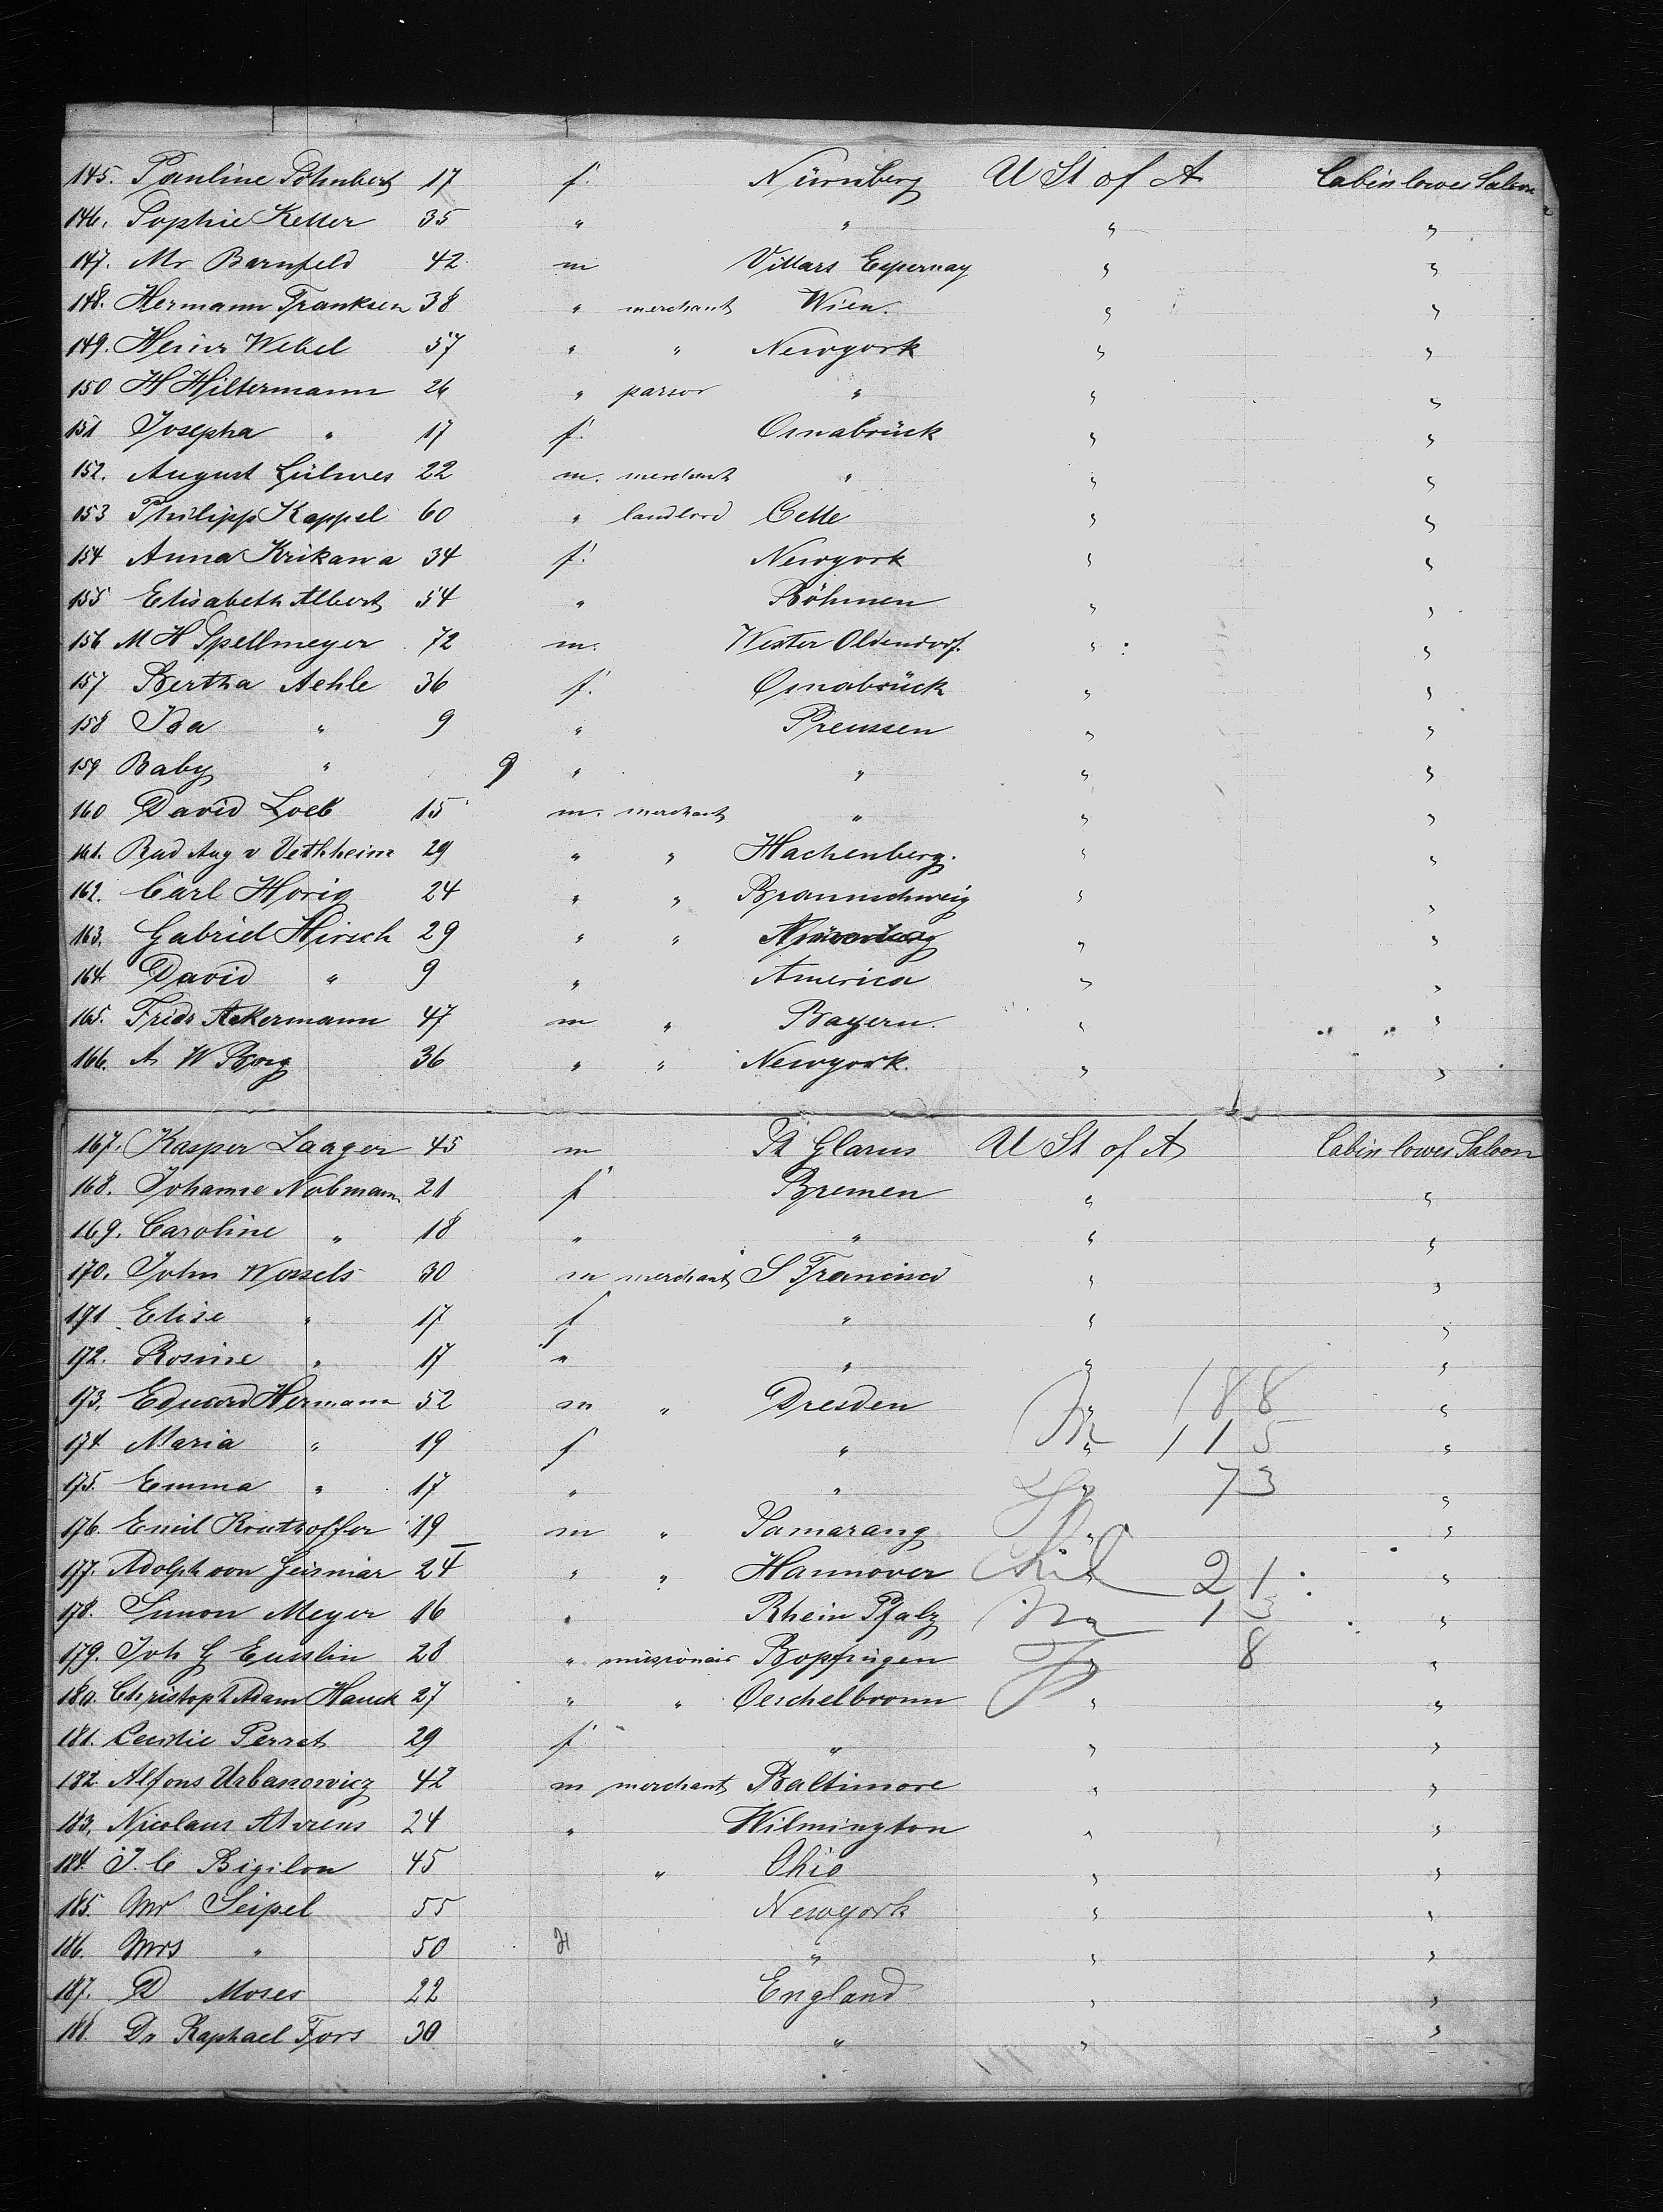 145. Pauline Pohnbert 17 f. Nürnberg U St of A Cabin lower Saloon
146. Sophie Keller 35 " " " "
147. Mr Barnfeld 42 m Villars Epernay " "
148. Hermann Franksen 38 " merchant Wien. " "
149. Heinr Webel 57 " " Newyork " "
150 H Hiltermann 26 " parsor " " "
151 Josepha " 17 f. Osnabrück " "
152. August Lülwes 22 m. merchant " " "
153 Philipp Kappel 60 " landlord Celle " "
154 Anna Krikawa 34 f. Newyork " "
155 Elisabeth Albert 54 " Böhmen " "
156 M H Spellmeyer 72 m. Wester Oldendorf. " "
157 Bertha Aehle 36 f. Osnabrück " "
158 Ida " 9 " Preussen " "
159 Baby " 9 " " " "
160 David Loeb 15 m. merchant " " "
161. Rud Aug v Vethheim 29 " " Hachenberg. " "
162. Carl Horig 24 " " Braunschweig " "
163. Gabriel Hirsch 29 " " " "
164. David " 9 " America " "
165. Fridr Ackermann 47 m " Bayern. " "
166. A W Borg 36 " " Newyork. " "
167. Kasper Laager 45 m Glarus U St of A Cabin lower Saloon
168. Johanne Nobmann 21 f Bremen " "
169. Caroline " 18 " " " "
170. John Wessels 30 m merchant S Francisco " "
171 Elise " 17 f " " "
172. Rosine " 17 " " " "
173. Eduard Hermann 52 m " Dresden " 188 "
174 Maria " 19 f " " 115 "
175. Emma " 17 " " " 73 "
176. Emil 19 m " Samarang " "
177. Adolph von Geismar 24 " " Hannover Chil 21 "
178. Simon Meyer 16 " Rhein Pfalz 13 "
179. Joh G Eusslin 28 " missionair Bopfingen 8 "
180. Christoph Adam Hauck 27 " " Oeschelbronn " "
181. Cecilie Perret 29 f " " "
182. Alfons Urbanowicz 42 m merchant Baltimore " "
183. Nicolaus Ahrens 24 " Wilmington " "
184. J. C Bigilon 45 " Ohio " "
185. Mr Seipel 55 Newyork " "
186. Mrs " 50 " " "
187. D Moses 22 England " "
188. Dr Raphael Fors 30 " " "